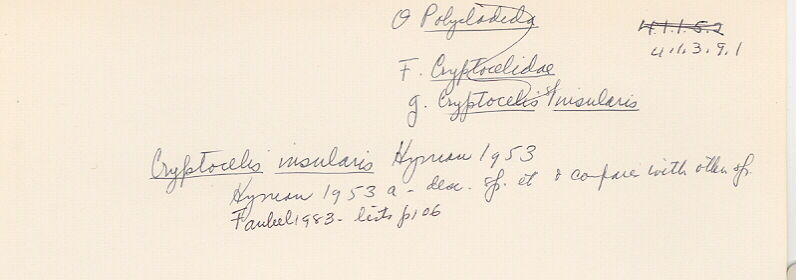 O Polycladida
4.1.1.5.2
4.1.3.9.1
F. Cryptocelidae
g. Cryptocelis insularis
Cryptocelis insularis Hyman 1953
Hyman 1953 a - desc. sp. et & compares with other sp.
Faubel 1983 - lists p106